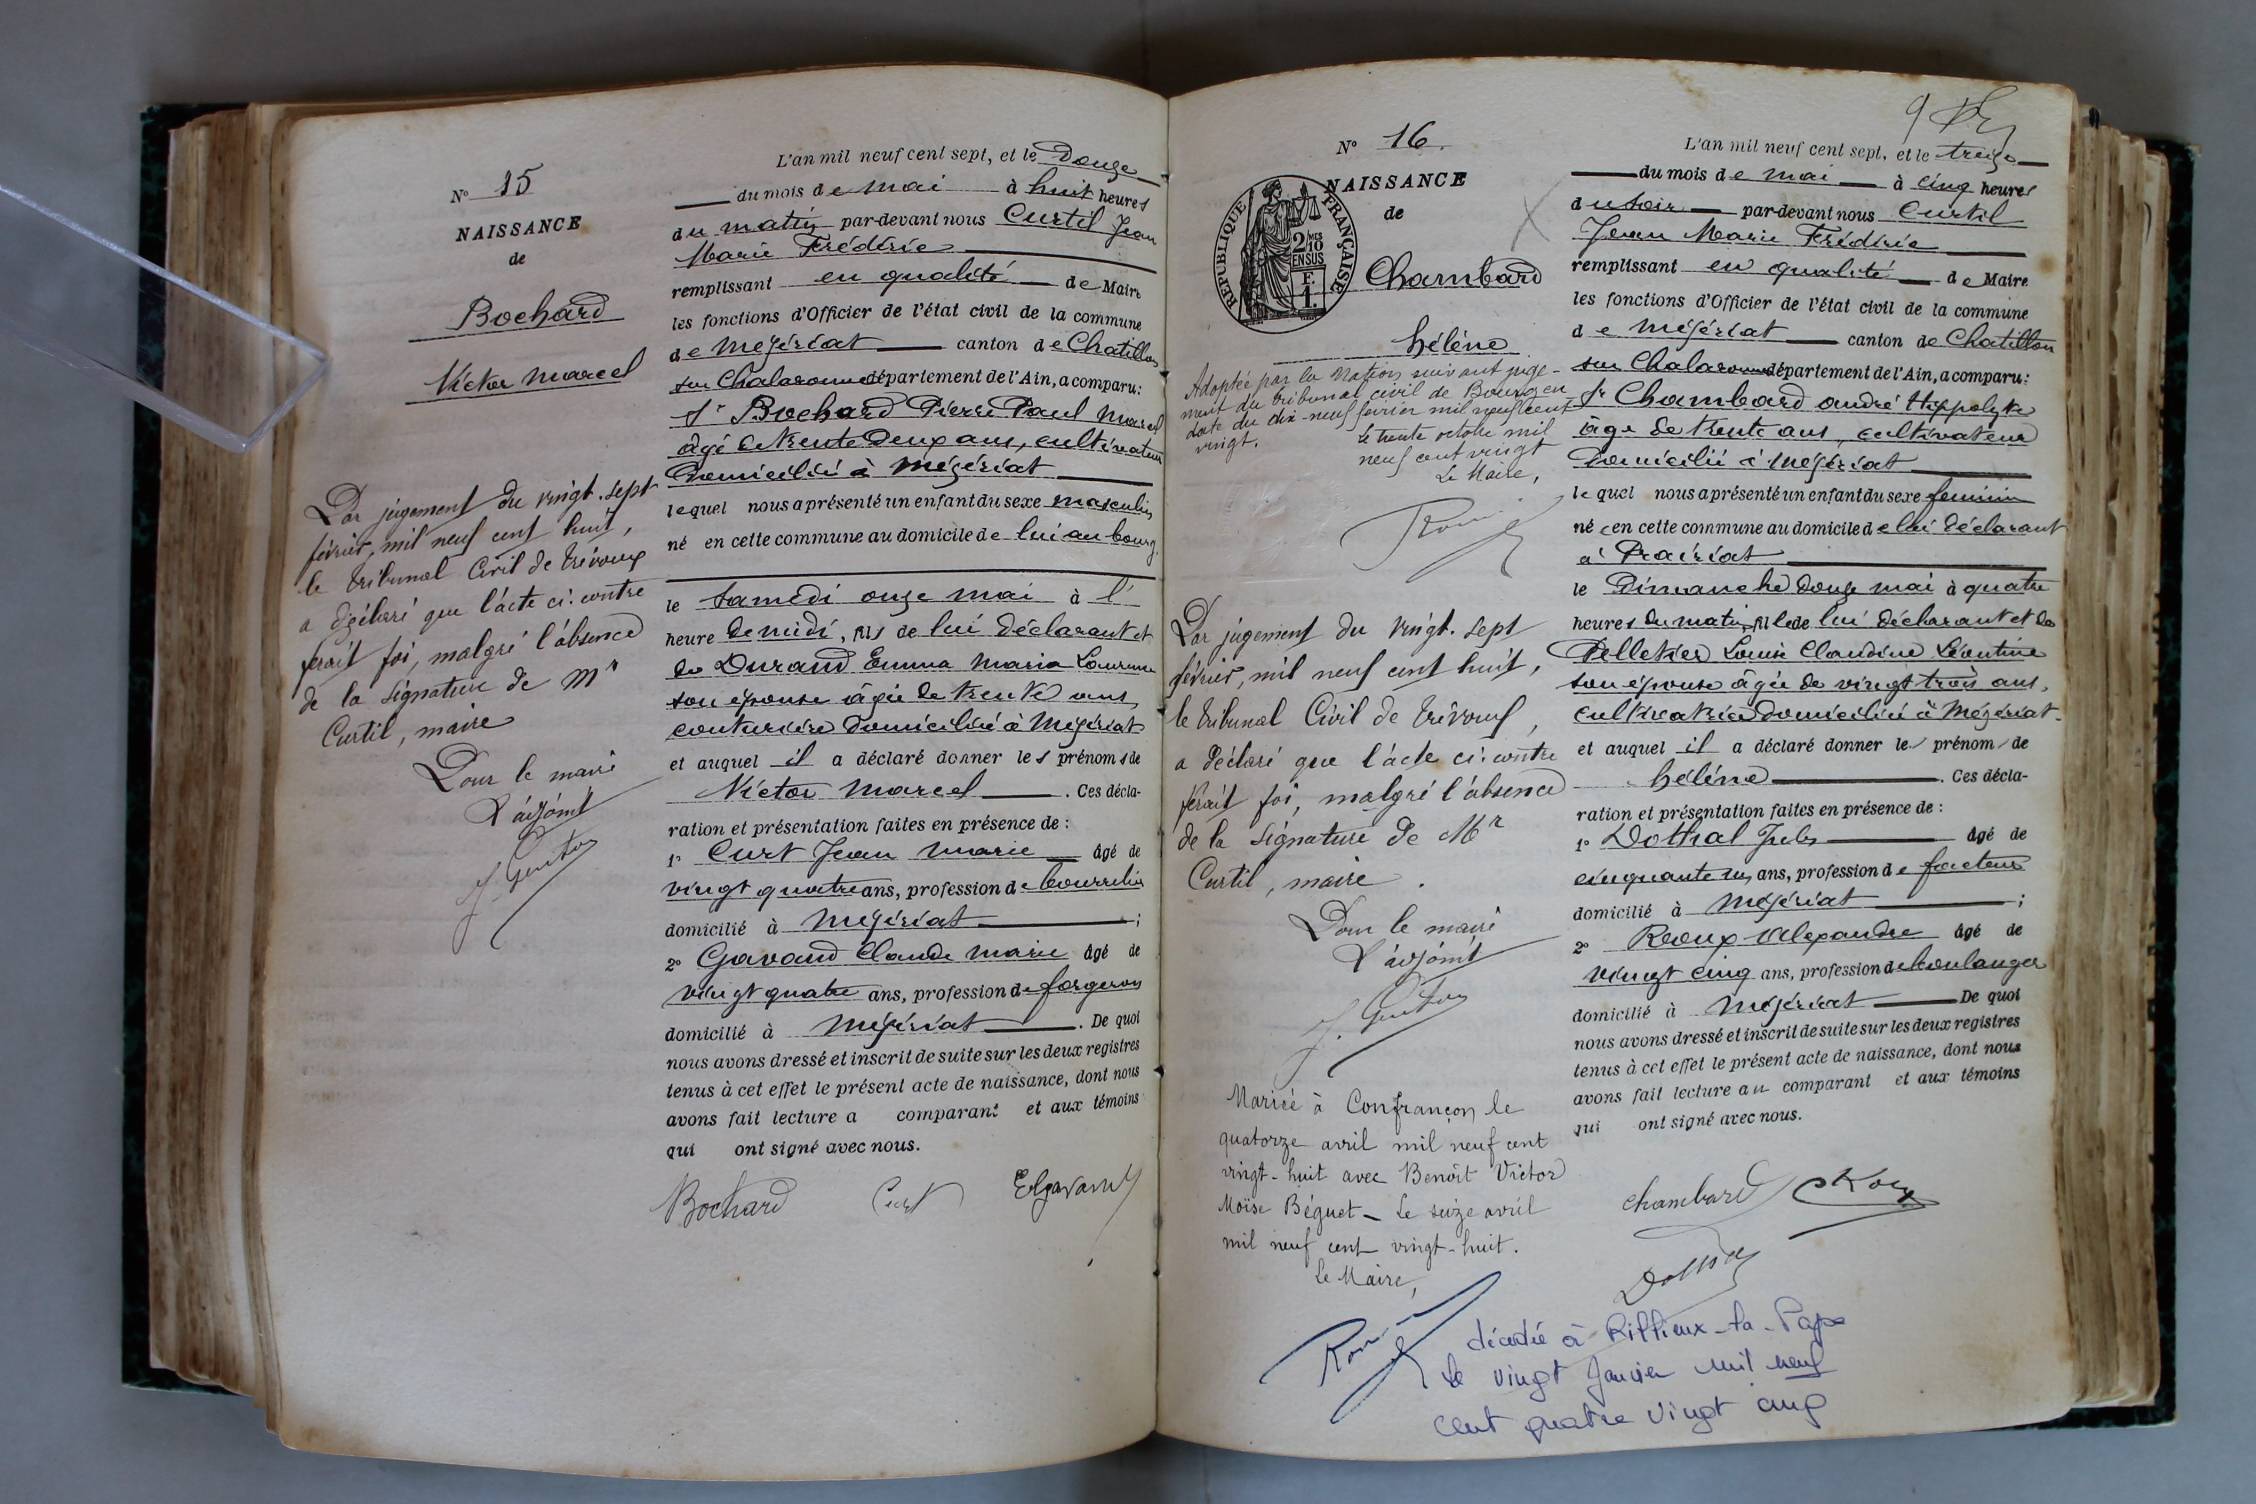 N° 15
NAISSANCE
de
Bochard
Victor Marcel
Par jugement du vingt-sept
février, mil neuf cent huit,
le tribunal Civil de Trévoux
a déclaré que l'acte ci-contre
ferait foi, malgré l'absence
de la signature de Mr
Curtil, maire
Pour le maire
L'adjoint
L'an mil neuf cent sept, et le Douze
du mois de mai à huit heures
du matin par-devant nous Curtil Jean
Marie Frédéric
remplissant en qualité de Maire
les fonctions d'Officier de l'état civil de la commune
de Mézériat canton de Chatillon
sur Chalaronne département de l'Ain, a comparu:
Sr Bochard Pierre Paul Marcel
âgé de trente deux ans, cultivateur
Domicilié à Mézériat
lequel nous a présenté un enfant du sexe masculin
né en cette commune au domicile de lui au bourg
le Samedi onze mai à l'
heure de midi, fils de lui déclarant et
de Durand Emma Maria
son épouse âgée de trente ans,
couturière domiciliée à Mézériat
et auquel il a déclaré donner les prénoms de
Victor Marcel. Ces décla-
ration et présentation faites en présence de :
1° Curt Jean Marie âgé de
vingt quatre ans, profession de bourrelier
domicilié à Mézériat;
2° Gavand Claude Marie âgé de
vingt quatre ans, profession de forgeron
domicilié à Mézériat. De quoi
nous avons dressé et inscrit de suite sur les deux registres
tenus à cet effet le présent acte de naissance, dont nous
avons fait lecture a comparant et aux témoins
qui ont signé avec nous.
Bochard Curt
9
N° 16.
NAISSANCE
de
RÉPUBLIQUE FRANÇAISE
2/10 MES
EN SUS
F.
1.
Chambard
Hélène
Adoptée par la Nation suivant juge-
ment du tribunal civil de Bourg en
date du dix-neuf février mil neuf cent
vingt.
Le trente octobre mil
neuf cent vingt
Le Maire,
Par jugement du vingt-sept
février, mil neuf cent huit,
le tribunal Civil de Trévoux,
a déclaré que l'acte ci-contre
ferait foi, malgré l'absence
de la signature de Mr
Curtil, maire.
Pour le maire
L'adjoint
Mariée à Confrançon le
quatorze avril mil neuf cent
vingt-huit avec Benoît Victor
Moïse Béguet - Le seize avril
mil neuf cent vingt-huit.
Le Maire,
L'an mil neuf cent sept, et le treize
du mois de mai à cinq heures
du soir par-devant nous Curtil
Jean Marie Frédéric
remplissant en qualité de Maire
les fonctions d'Officier de l'état civil de la commune
de Mézériat canton de Chatillon
sur Chalaronne département de l'Ain, a comparu:
Sr Chambard André Hippolyte
âgé de trente ans, cultivateur
Domicilié à Mézériat
lequel nous a présenté un enfant du sexe feminin
né e en cette commune au domicile de lui déclarant
à Prairiat
le Dimanche douze mai à quatre
heures du matin, fille de lui déclarant et de
Pelletier Louise Claudine Léontine
son épouse âgée de vingt trois ans,
cultivatrice domiciliée à Mézériat
et auquel il a déclaré donner le prénom de
Hélène. Ces décla-
ration et présentation faites en présence de :
1° Dothal Jules âgé de
cinquante un ans, profession de facteur
domicilié à Mézériat;
2° Roux Alexandre âgé de
vingt cinq ans, profession de boulanger
domicilié à Mézériat De quoi
nous avons dressé et inscrit de suite sur les deux registres
tenus à cet effet le présent acte de naissance, dont nous
avons fait lecture au comparant et aux témoins
qui ont signé avec nous.
Chambard
décédée à Rillieux-la-Pape
le vingt Janvier mil neuf
cent quatre vingt cinq